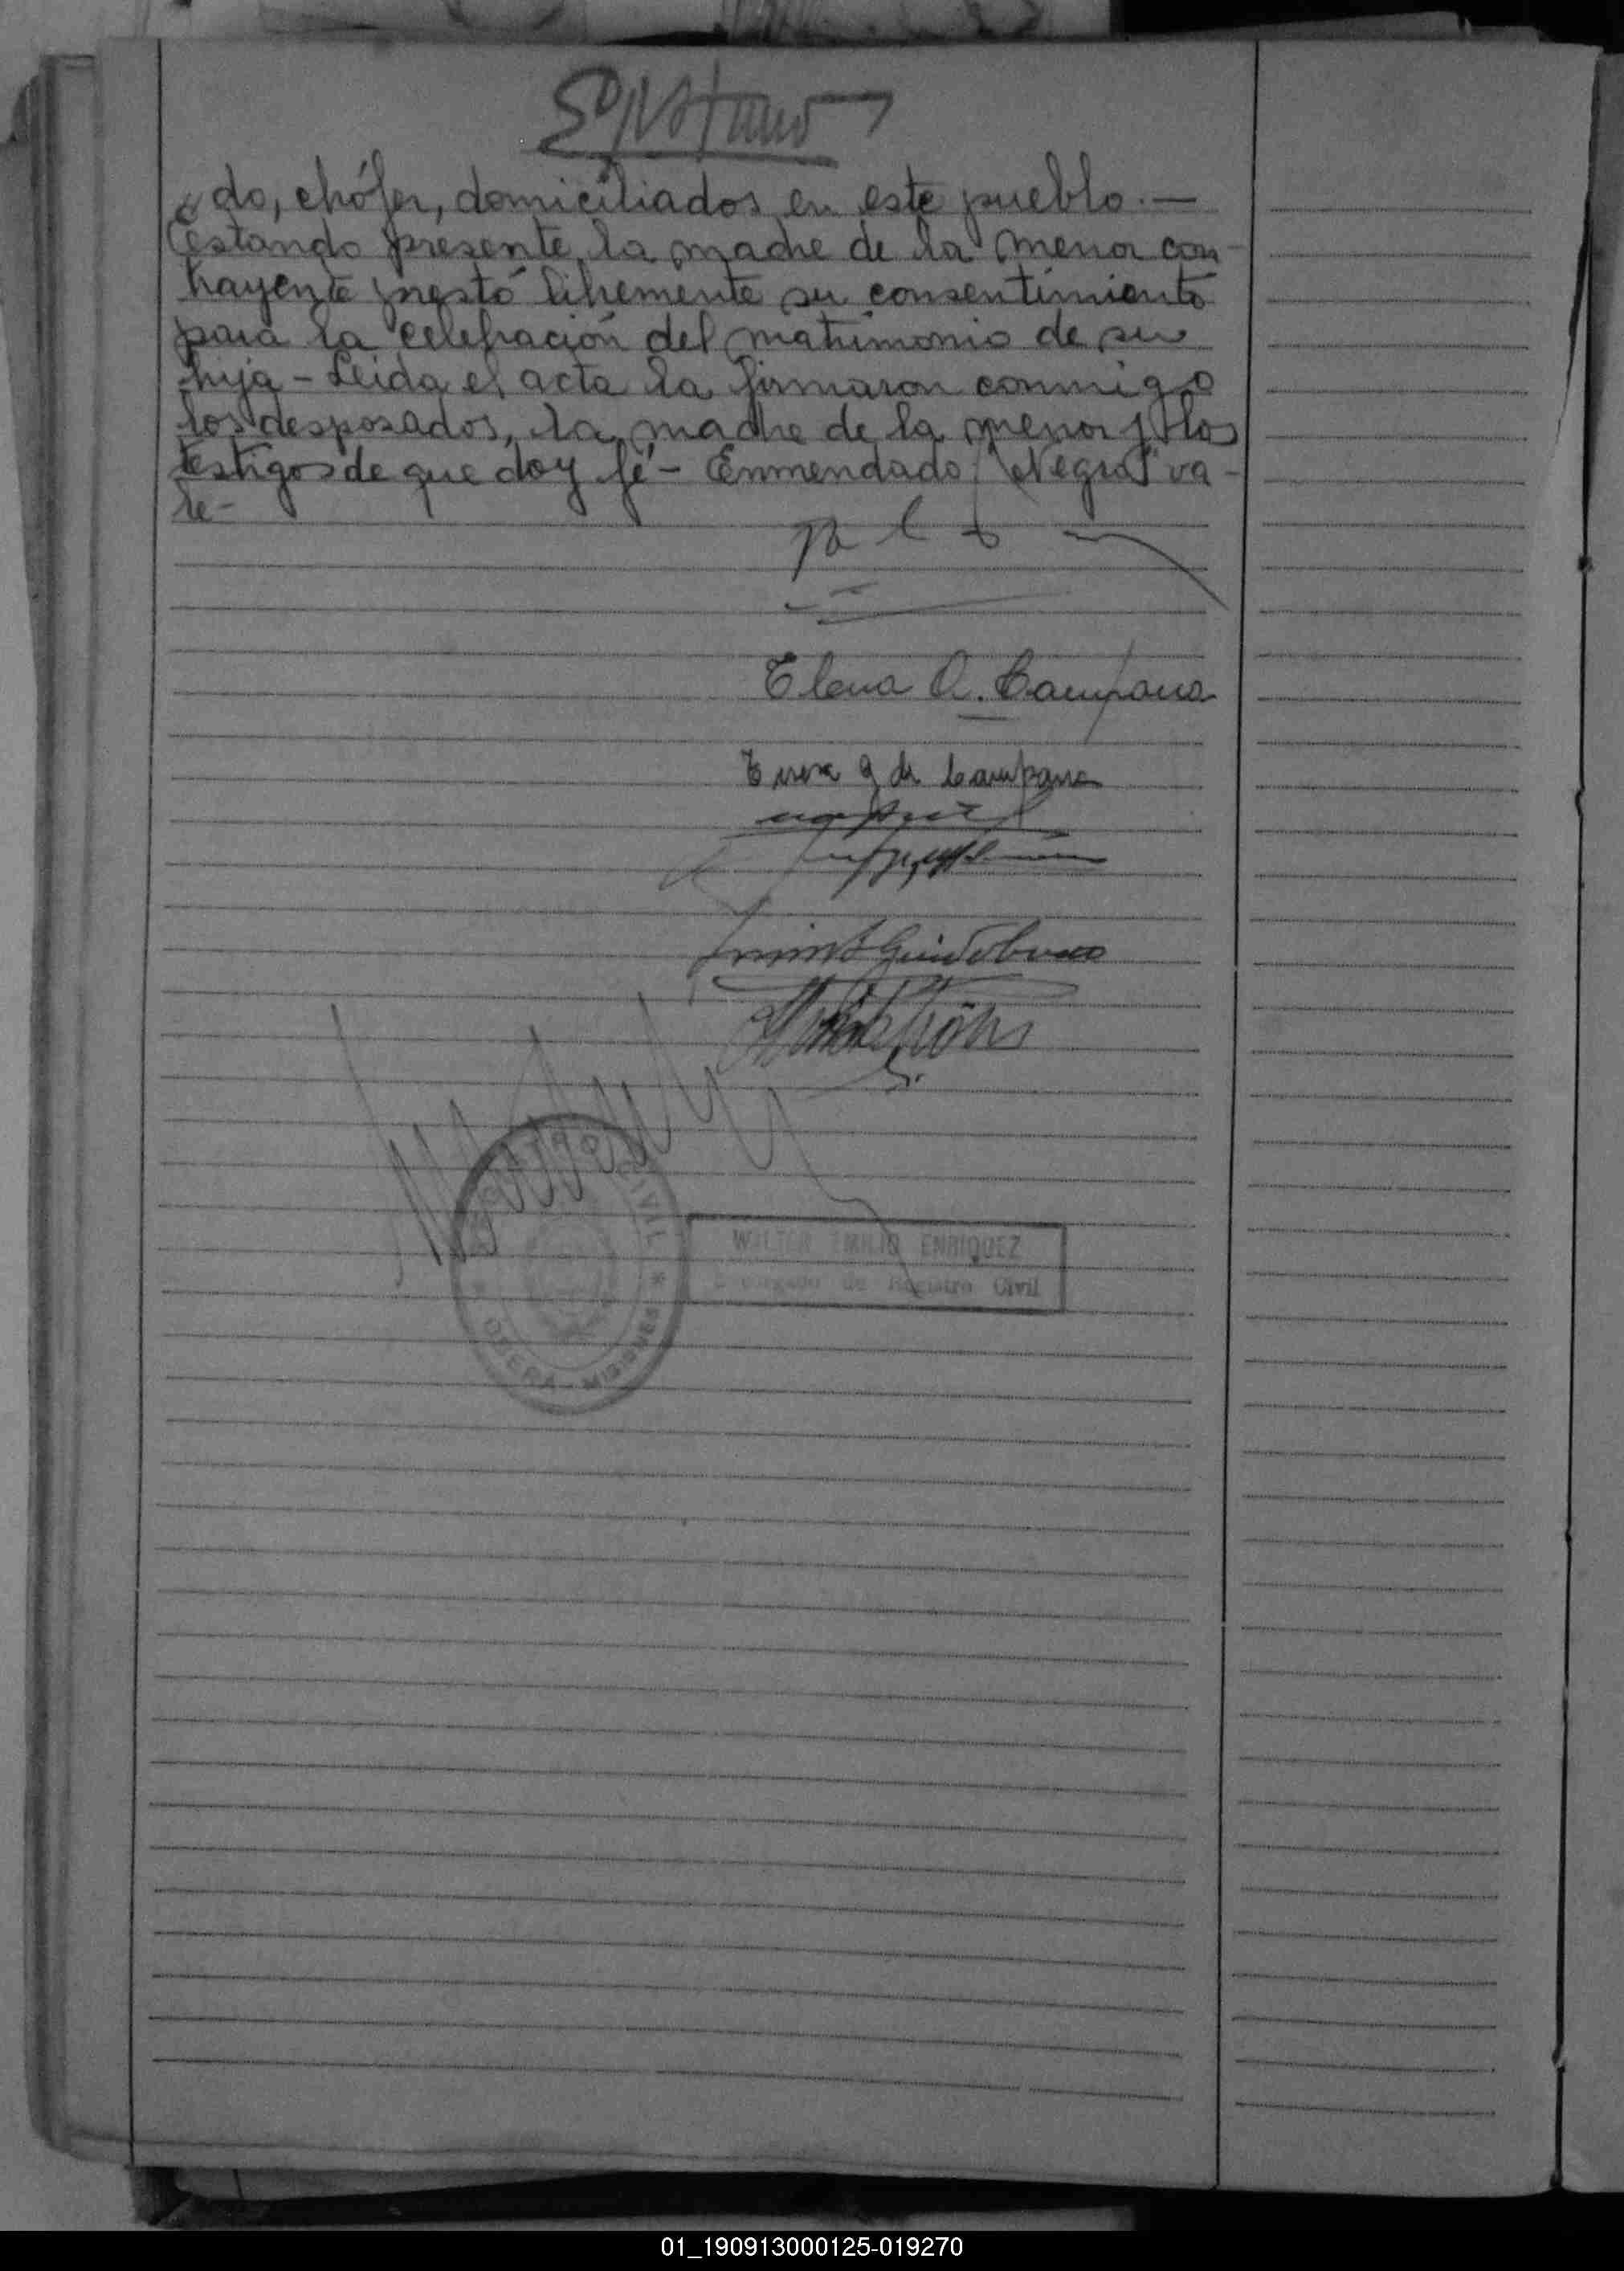 do, chófer, domiciliados en este pueblo.—
Estando presente la madre de la menor con-
trayente prestó libremente su consentimiento
para la celebración del matrimonio de su
hija - Leída el acta la firmaron conmigo
los desposados, la madre de la menor y los
testigos de que doy fé - Enmendado "Negra" va-
le-
Elena A. Campana
de Campana
WALTER EMILIO ENRIQUEZ
de Registro Civil
CIVIL
MISIONES
01_190913000125-019270